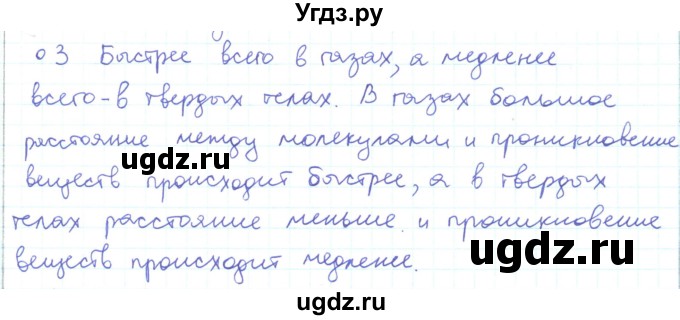 Угдз.ру
о3 Быстрее всего в газах, а медленее
всего - в твердых телах. В газах большое
расстояние между молекулами и проникновение
ugdz.ru ugdz.ru
веществ происходит быстрее, а в твердых
телах расстояние меньше и проникновение
веществ происходит медленее.
ugdz.ru ugdz.ru
ugdz.ru